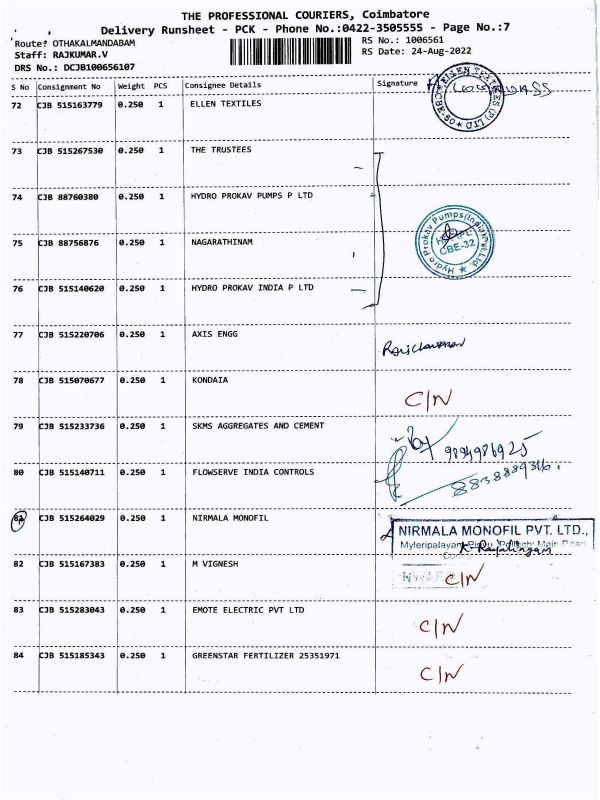 THE PROFESSIONAL COURIERS, Coimbatore
Delivery Runsheet - PCK - Phone No.:0422-3505555 - Page No.:7
Route: OTHAKALMANDABAM
RS No.: 1006561
Staff: RAJKUMAR.V
RS Date: 24-Aug-2022
DRS No.: DCJB100656107
S No Consignment No Weight PCS Consignee Details Signature
72 CJB 515163779 0.250 1 ELLEN TEXTILES
73 CJB 515267530 0.250 1 THE TRUSTEES
74 CJB 88760380 0.250 1 HYDRO PROKAV PUMPS P LTD
Hydro Prokav Pumps(India)Pvt.Ltd.
CBE-32
75 CJB 88756876 0.250 1 NAGARATHINAM
76 CJB 515140620 0.250 1 HYDRO PROKAV INDIA P LTD
77 CJB 515220706 0.250 1 AXIS ENGG
78 CJB 515070677 0.250 1 KONDAIA C/N
79 CJB 515233736 0.250 1 SKMS AGGREGATES AND CEMENT
9894986925
80 CJB 515140711 0.250 1 FLOWSERVE INDIA CONTROLS
81 CJB 515264029 0.250 1 NIRMALA MONOFIL
NIRMALA MONOFIL PVT. LTD.,
Myleripalayam Pollachi Main Road
82 CJB 515167383 0.250 1 M VIGNESH C/N
83 CJB 515283043 0.250 1 EMOTE ELECTRIC PVT LTD C/N
84 CJB 515185343 0.250 1 GREENSTAR FERTILIZER 25351971 C/N